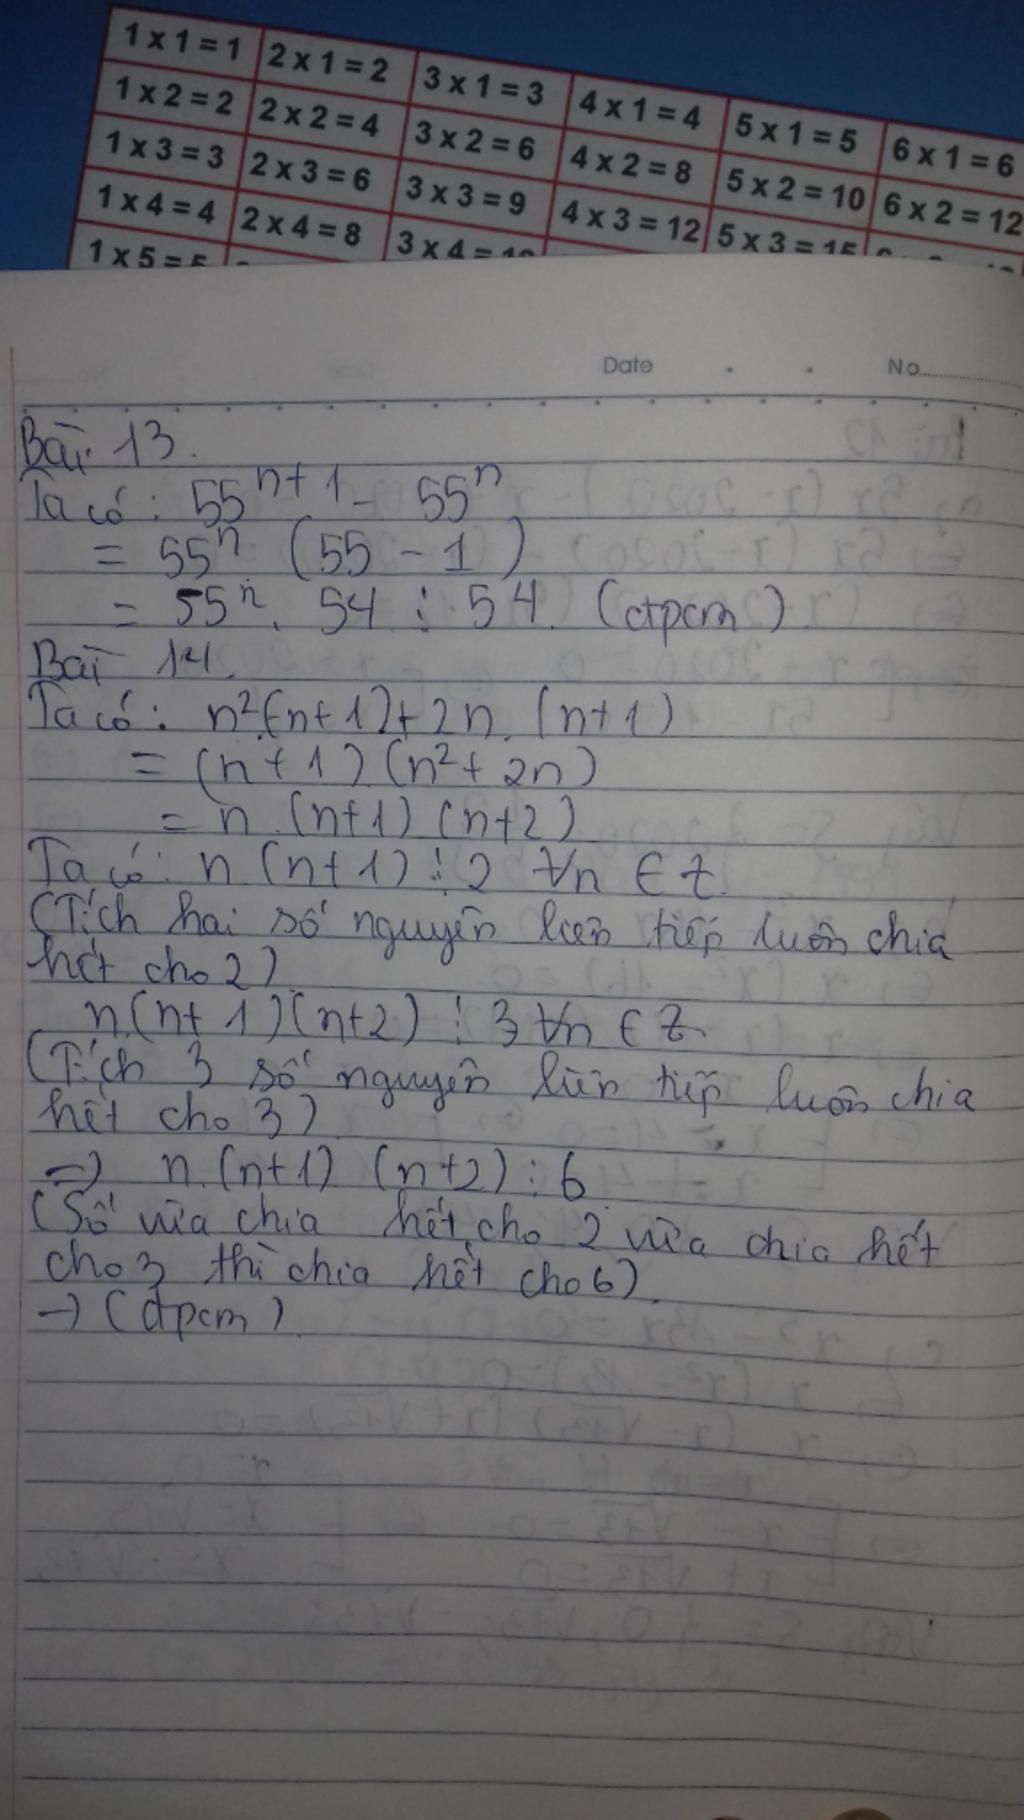 1 x 1 = 1 2 x 1 = 2 3 x 1 = 3 4 x 1 = 4 5 x 1 = 5 6 x 1 = 6
1 x 2 = 2 2 x 2 = 4 3 x 2 = 6 4 x 2 = 8 5 x 2 = 10 6 x 2 = 12
1 x 3 = 3 2 x 3 = 6 3 x 3 = 9 4 x 3 = 12 5 x 3 = 15
1 x 4 = 4 2 x 4 = 8 3 x 4 =
1 x 5 = 5
Date No.
Bài 13.
Ta có: 55^{n+1} - 55^n
= 55^n (55 - 1)
= 55^n . 54 ⋮ 54. (đpcm)
Bài 14.
Ta có: n²(n+1)+2n.(n+1)
= (n+1)(n²+2n)
= n.(n+1)(n+2)
Ta có: n(n+1)⋮2 ∀n ∈ Z.
(Tích hai số nguyên liên tiếp luôn chia
hết cho 2)
n(n+1)(n+2)⋮3 ∀n ∈ Z.
(Tích 3 số nguyên liên tiếp luôn chia
hết cho 3)
=> n.(n+1)(n+2)⋮6
(Số vừa chia hết cho 2 vừa chia hết
cho 3 thì chia hết cho 6).
→ (đpcm).